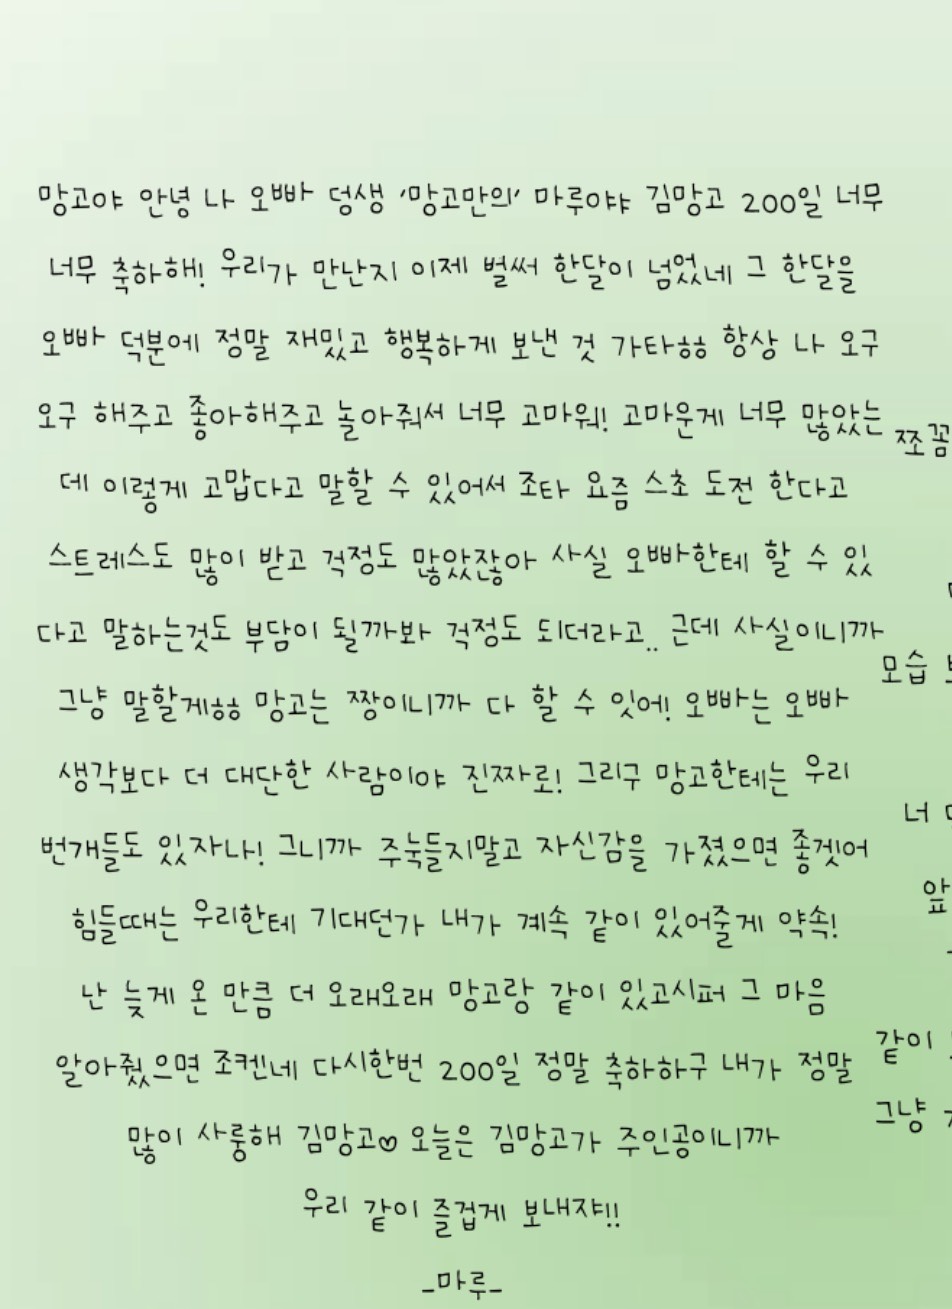 망고야 안녕 나 오빠 덩생 '망고만의' 마루야ㅑ 김망고 200일 너무
너무 축하해! 우리가 만난지 이제 벌써 한달이 넘었네 그 한달을
오빠 덕분에 정말 재밌고 행복하게 보낸 것 가타ㅎㅎ 항상 나 오구
오구 해주고 좋아해주고 놀아줘서 너무 고마워! 고마운게 너무 많았는
쪼꼼
데 이렇게 고맙다고 말할 수 있어서 조타 요즘 스초 도전 한다고
스트레스도 많이 받고 걱정도 많았잖아 사실 오빠한테 할 수 있
다고 말하는것도 부담이 될까봐 걱정도 되더라고.. 근데 사실이니까
모습
그냥 말할게ㅎㅎ 망고는 짱이니까 다 할 수 잇어! 오빠는 오빠
생각보다 더 대단한 사람이야 진짜로! 그리구 망고한테는 우리
너
번개들도 있자나! 그니까 주눅들지말고 자신감을 가졌으면 좋겟어
앞
힘들때는 우리한테 기대던가 내가 계속 같이 있어줄게 약속!
난 늦게 온 만큼 더 오래오래 망고랑 같이 있고시퍼 그 마음
같이
알아줬으면 조켄네 다시한번 200일 정말 축하하구 내가 정말
그냥
많이 사룽해 김망고♡ 오늘은 김망고가 주인공이니까
우리 같이 즐겁게 보내쟈!!
-마루-